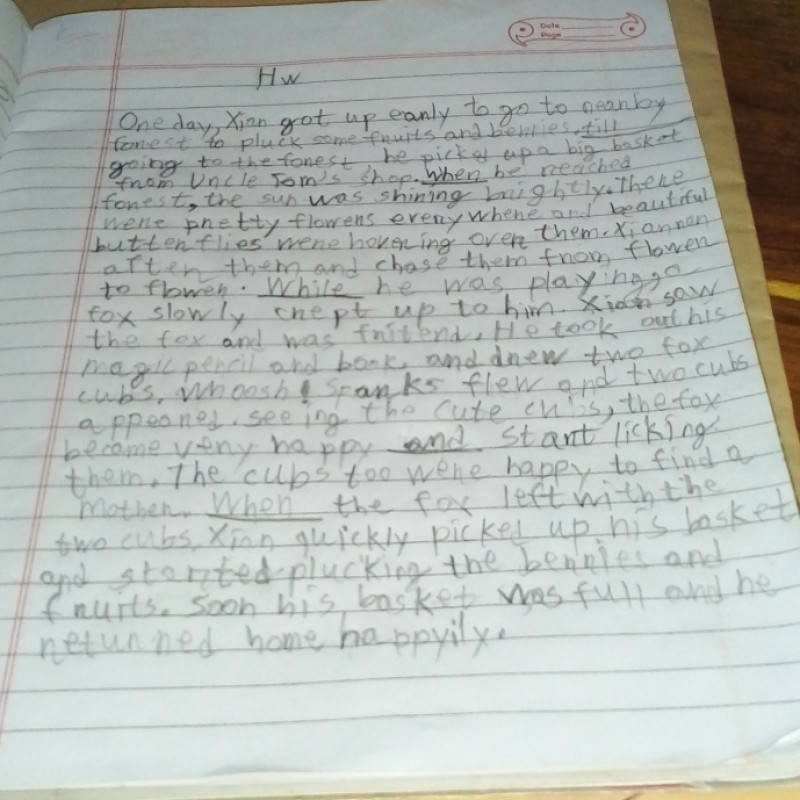 Date
Page
Hw
One day, Xian got up early to go to nearby
forest to pluck some fruits and berries, till
going to the forest, he picked up a big basket
from Uncle Tom's shop. When he reached
forest, the sun was shining brightly. There
were pretty flowers everywhere and beautiful
butterflies were hovering over them. Xian ran
after them and chase them from flower
to flower. While he was playing, a
fox slowly crept up to him. Xian saw
the fox and was fritend. He took out his
magic pencil and book, and drew two fox
cubs. Whoosh! Spanks flew and two cubs
appeared. seeing the cute cubs, the fox
became very happy and start licking
them. The cubs too were happy to find a
mother. When the fox left with the
two cubs. Xian quickly picked up his basket
and started plucking the berries and
fruits. Soon his basket was full and he
returned home happyily.